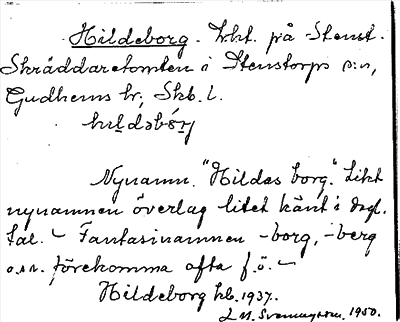 Hildeborg. Lht. på Stenst.
Skräddaretomten i Stenstorps sn,
Gudhems hd, Skb. l.
hɩldəbórj
Nynamn. "Hildas borg." Likt
nynamnen överlag litet känt i dagl.
tal. – Fantasinamnen -borg, -berg
o.s.v. förekomma ofta f.ö. –
Hildeborg hb. 1937.
1950.